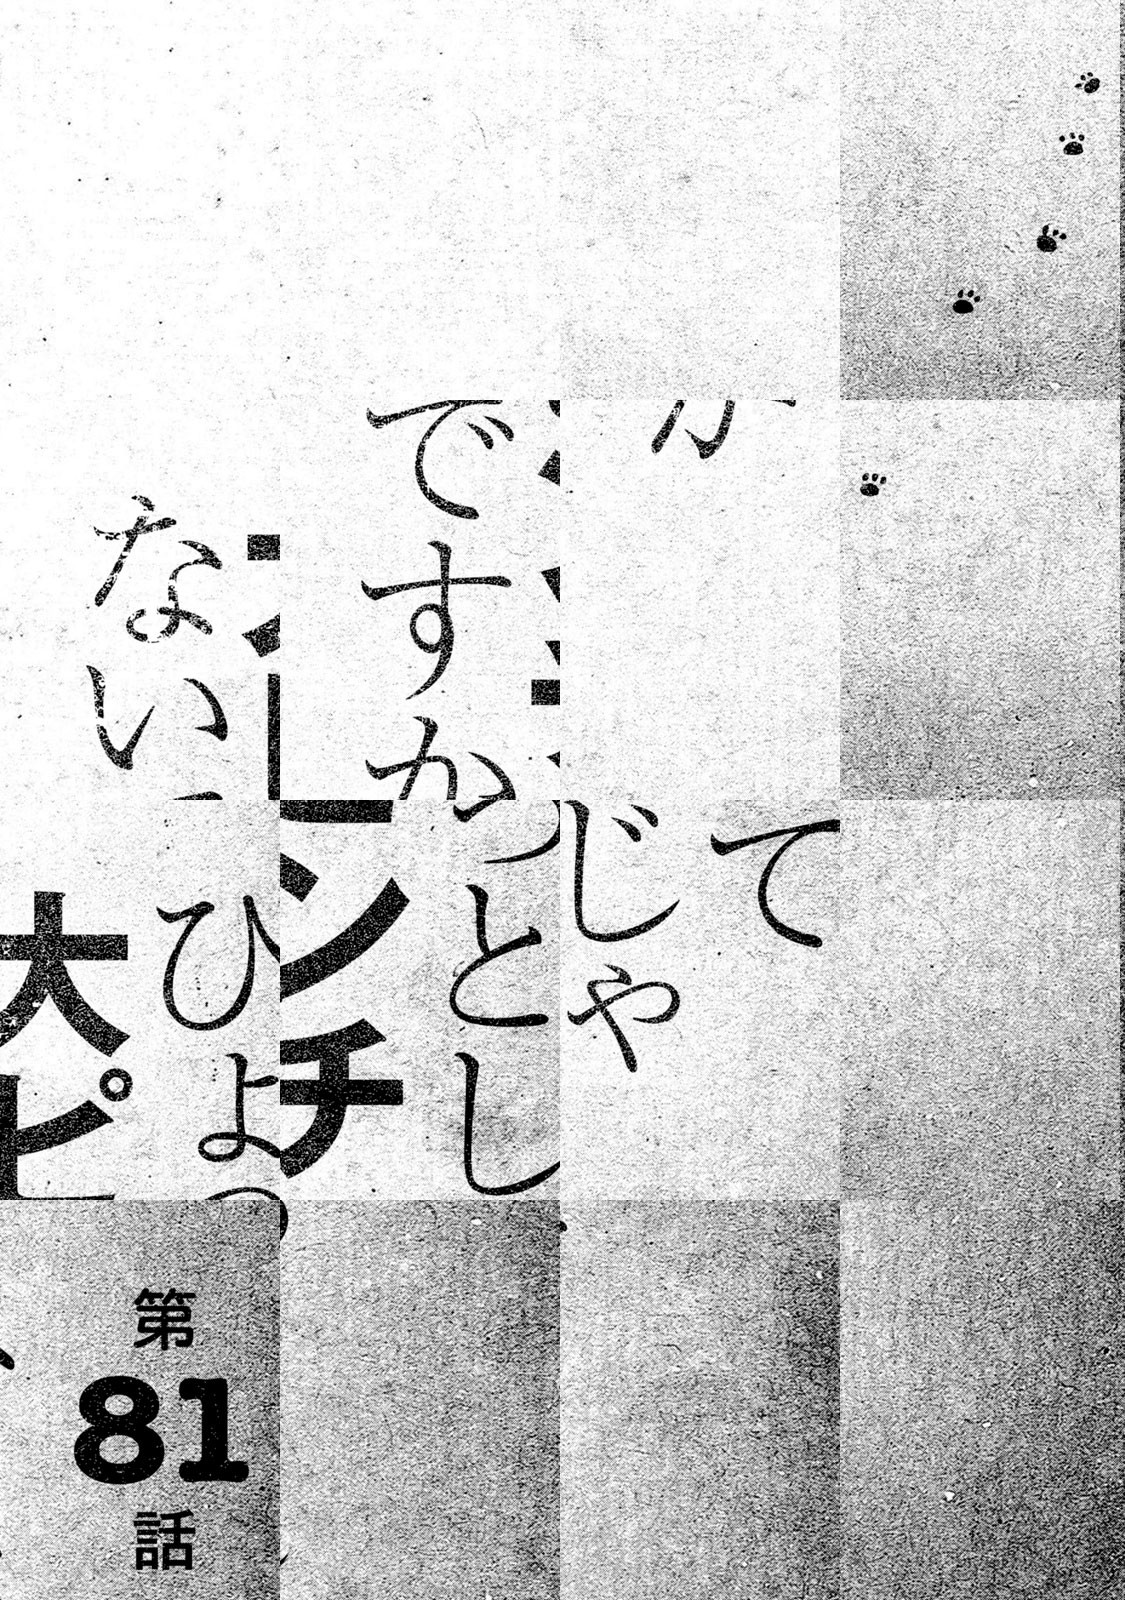 て
じゃ
とし
ですか
ンチ
ない
ひょっ
大ピ
第
81
話